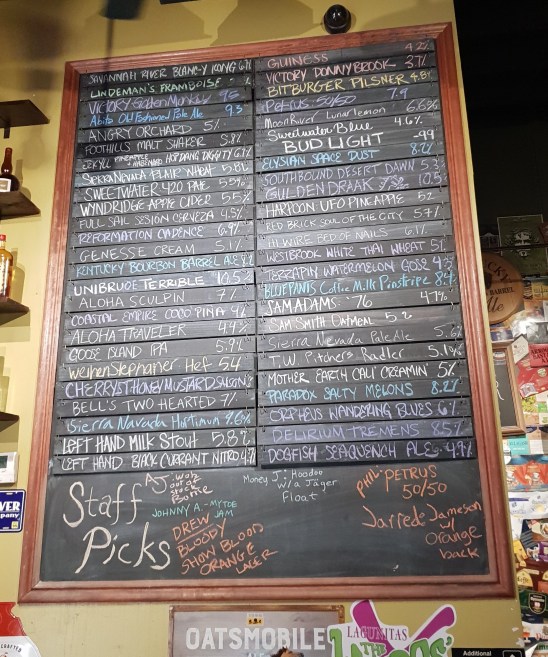 SAVANNAH RIVER BLANC-Y KONG 6%
LINDEMAN'S FRAMBOISE
VICTORY Golden Monkey 9.5
Abita Old Fashioned Pale Ale 9.3
ANGRY ORCHARD 5%
FOOTHILLS MALT SHAKER 5.8%
JEKYLL PINEAPPLE + HABENERO HOP DANG DIGGITY 6.7%
SIERRA NEVADA WHEAT 5.8%
SWEETWATER 420 PALE 5.5%
WYNDRIDGE APPLE CIDER 5.5%
FULL SAIL SESION CERVEZA 4.5%
REFORMATION CADENCE 6.9%
GENESSE CREAM 5.1%
KENTUCKY BOURBON BARREL ALE
UNIBRUOE TERRIBLE 10.5%
ALOHA SCULPIN 7%
COASTAL EMPIRE COCO PINA 9%
ALOHA TRAVELER 4.4%
GOOSE ISLAND IPA 5.9%
weihenstephaner Hef 5.4
CHERRYST HONEY MUSTARD SAISON
BELL'S TWO HEARTED 7%
Sierra Nevada
LEFT HAND MILK STOUT 5.8%
LEFT HAND BLACK CURRANT NITRO
GUINESS 4.2%
VICTORY DONNYBROOK 3.7%
BITBURGER PILSNER 4.8%
Petrus 50/50 7.9
Moon River Lunar lemon 6.6%
Sweetwater Blue 4.6%
BUD LIGHT -99
ELYSIAN SPACE DUST 8.2%
SOUTHBOUND DESERT DAWN 5.3
GULDEN DRAAK 10.5
HARPOON UFO PINEAPPLE 5.2
RED BRICK SOUL OF THE CITY 5.7%
HI WIRE BED OF NAILS 6.1%
WESTBROOK WHITE THAI WHEAT 5%
TERRAPIN WATERMELON GOSE 4.3%
BLUEPANTS Coffee Milk Pinstripe 8.4%
SAM ADAMS '76 4.7%
SAM SMITH OATMEAL 5.2
Sierra Nevada Pale Ale 5.6%
T.W. Pitchers Radler 5.1%
MOTHER EARTH CALI CREAMIN' 5%
PARADOX SALTY MELONS 8.2%
ORPHEUS WANDERING BLUES 6%
DELIRIUM TREMENS 8.5%
DOGFISH SEAQUENCH ALE 4.9%
Staff
Picks
AJ - Wob
our da
stock
Bottle
JOHNNY A. - MYTOE
JAM
DREW
BLOODY
SHOW BLOOD
ORANGE
LAGER
Money J: Hoodoo
w/ a Jäger
Float
PHIL: PETRUS
50/50
Jarred: Jameson
w/
Orange
back
OATSMOBILE
LAGUNITAS
THE
Additional